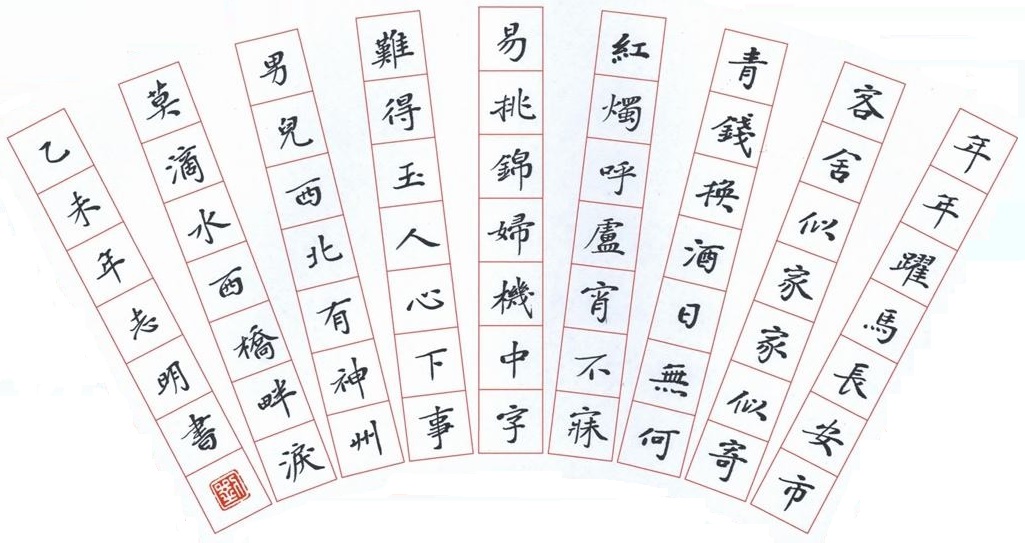 年年躍馬長安市
客舍似家家似寄
青錢換酒日無何
紅燭呼盧宵不寐
易挑錦婦機中字
難得玉人心下事
男兒西北有神州
莫滴水西橋畔淚
乙未年志明書